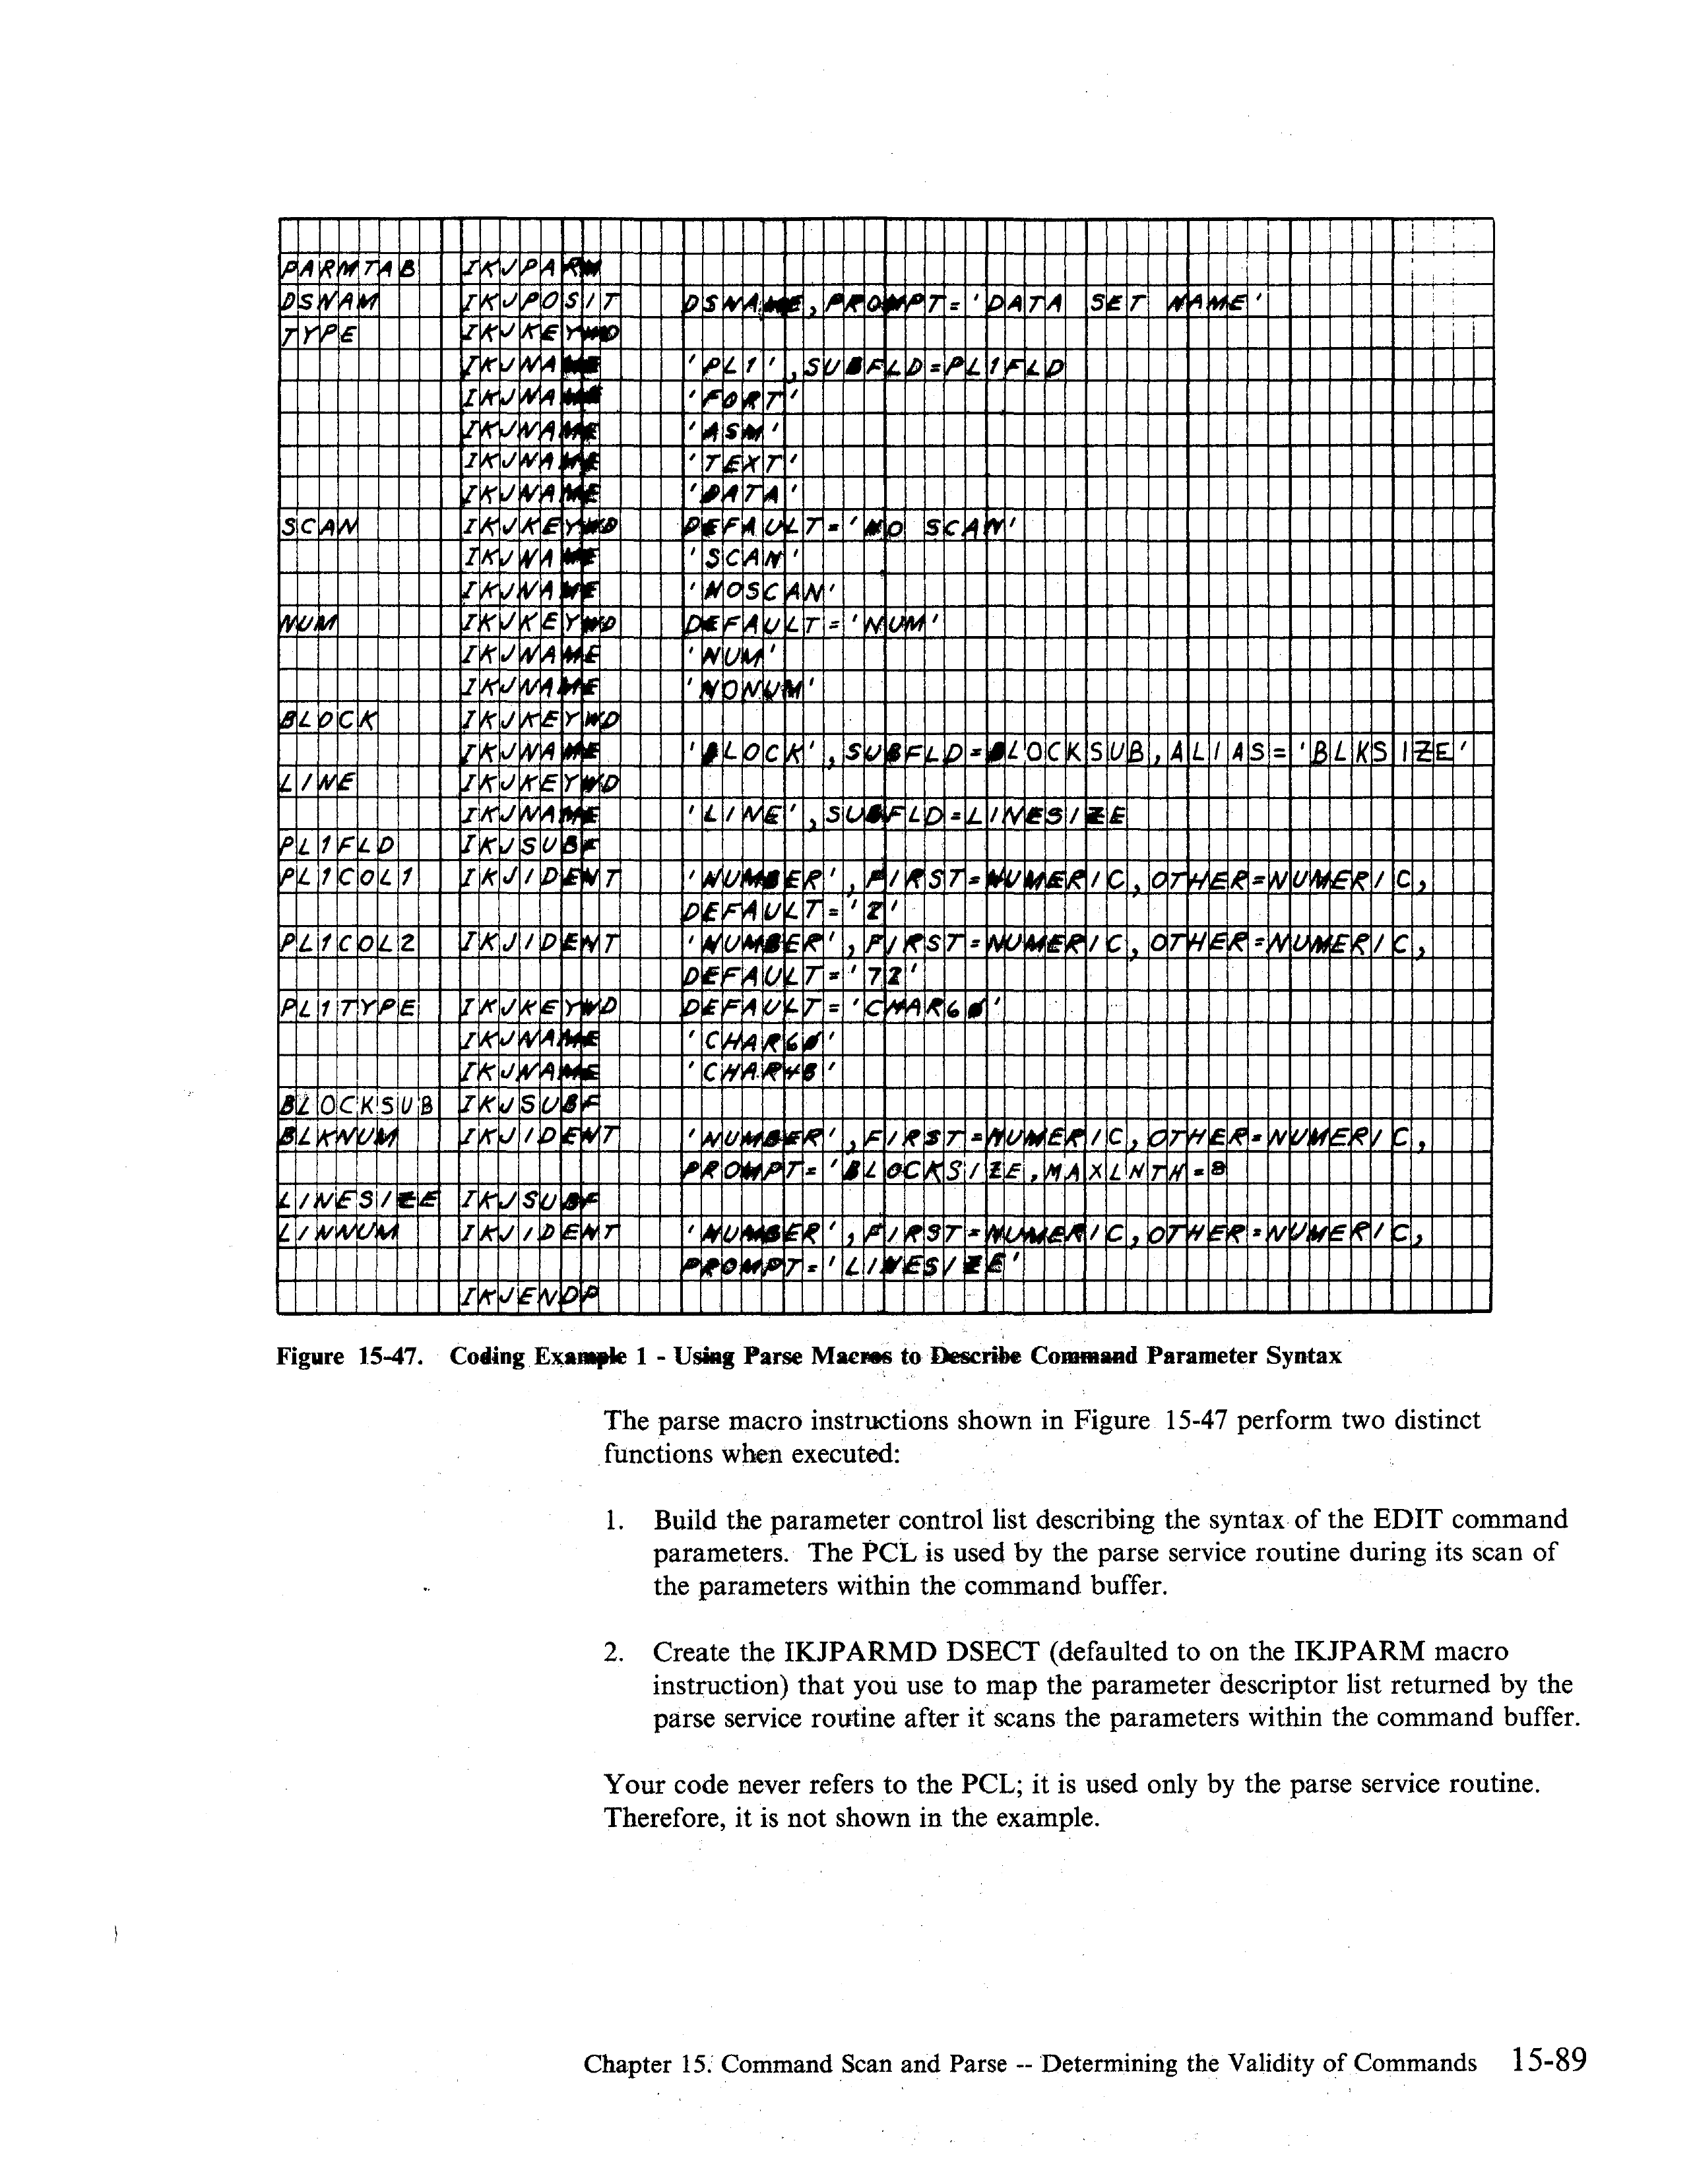 PARMTAB IKJPARM
DSNAM IKJPOSIT DSNAME,PROMPT='DATA SET NAME'
TYPE IKJKEYWD
IKJNAME 'PL1',SUBFLD=PL1FLD
IKJNAME 'FORT'
IKJNAME 'ASM'
IKJNAME 'TEXT'
IKJNAME 'DATA'
SCAN IKJKEYWD DEFAULT='NO SCAN'
IKJNAME 'SCAN'
IKJNAME 'NOSCAN'
NUM IKJKEYWD DEFAULT='NUM'
IKJNAME 'NUM'
IKJNAME 'NONUM'
BLOCK IKJKEYWD
IKJNAME 'BLOCK',SUBFLD=BLOCKSUB,ALIAS='BLKSIZE'
LINE IKJKEYWD
IKJNAME 'LINE',SUBFLD=LINESIZE
PL1FLD IKJSUBF
PL1COL1 IKJIDENT 'NUMBER',FIRST=NUMERIC,OTHER=NUMERIC,
DEFAULT='2'
PL1COL2 IKJIDENT 'NUMBER',FIRST=NUMERIC,OTHER=NUMERIC,
DEFAULT='72'
PL1TYPE IKJKEYWD DEFAULT='CHAR60'
IKJNAME 'CHAR60'
IKJNAME 'CHAR48'
BLOCKSUB IKJSUBF
BLKNUM IKJIDENT 'NUMBER',FIRST=NUMERIC,OTHER=NUMERIC,
PROMPT='BLOCKSIZE,MAXLNTH=8
LINESIZE IKJSUBF
LINNUM IKJIDENT 'NUMBER',FIRST=NUMERIC,OTHER=NUMERIC,
PROMPT='LINESIZE'
IKJENDP
Figure 15-47. Coding Example 1 - Using Parse Macros to Describe Command Parameter Syntax
The parse macro instructions shown in Figure 15-47 perform two distinct
functions when executed:
1. Build the parameter control list describing the syntax of the EDIT command
parameters. The PCL is used by the parse service routine during its scan of
the parameters within the command buffer.
2. Create the IKJPARMD DSECT (defaulted to on the IKJPARM macro
instruction) that you use to map the parameter descriptor list returned by the
parse service routine after it scans the parameters within the command buffer.
Your code never refers to the PCL; it is used only by the parse service routine.
Therefore, it is not shown in the example.
Chapter 15. Command Scan and Parse -- Determining the Validity of Commands 15-89